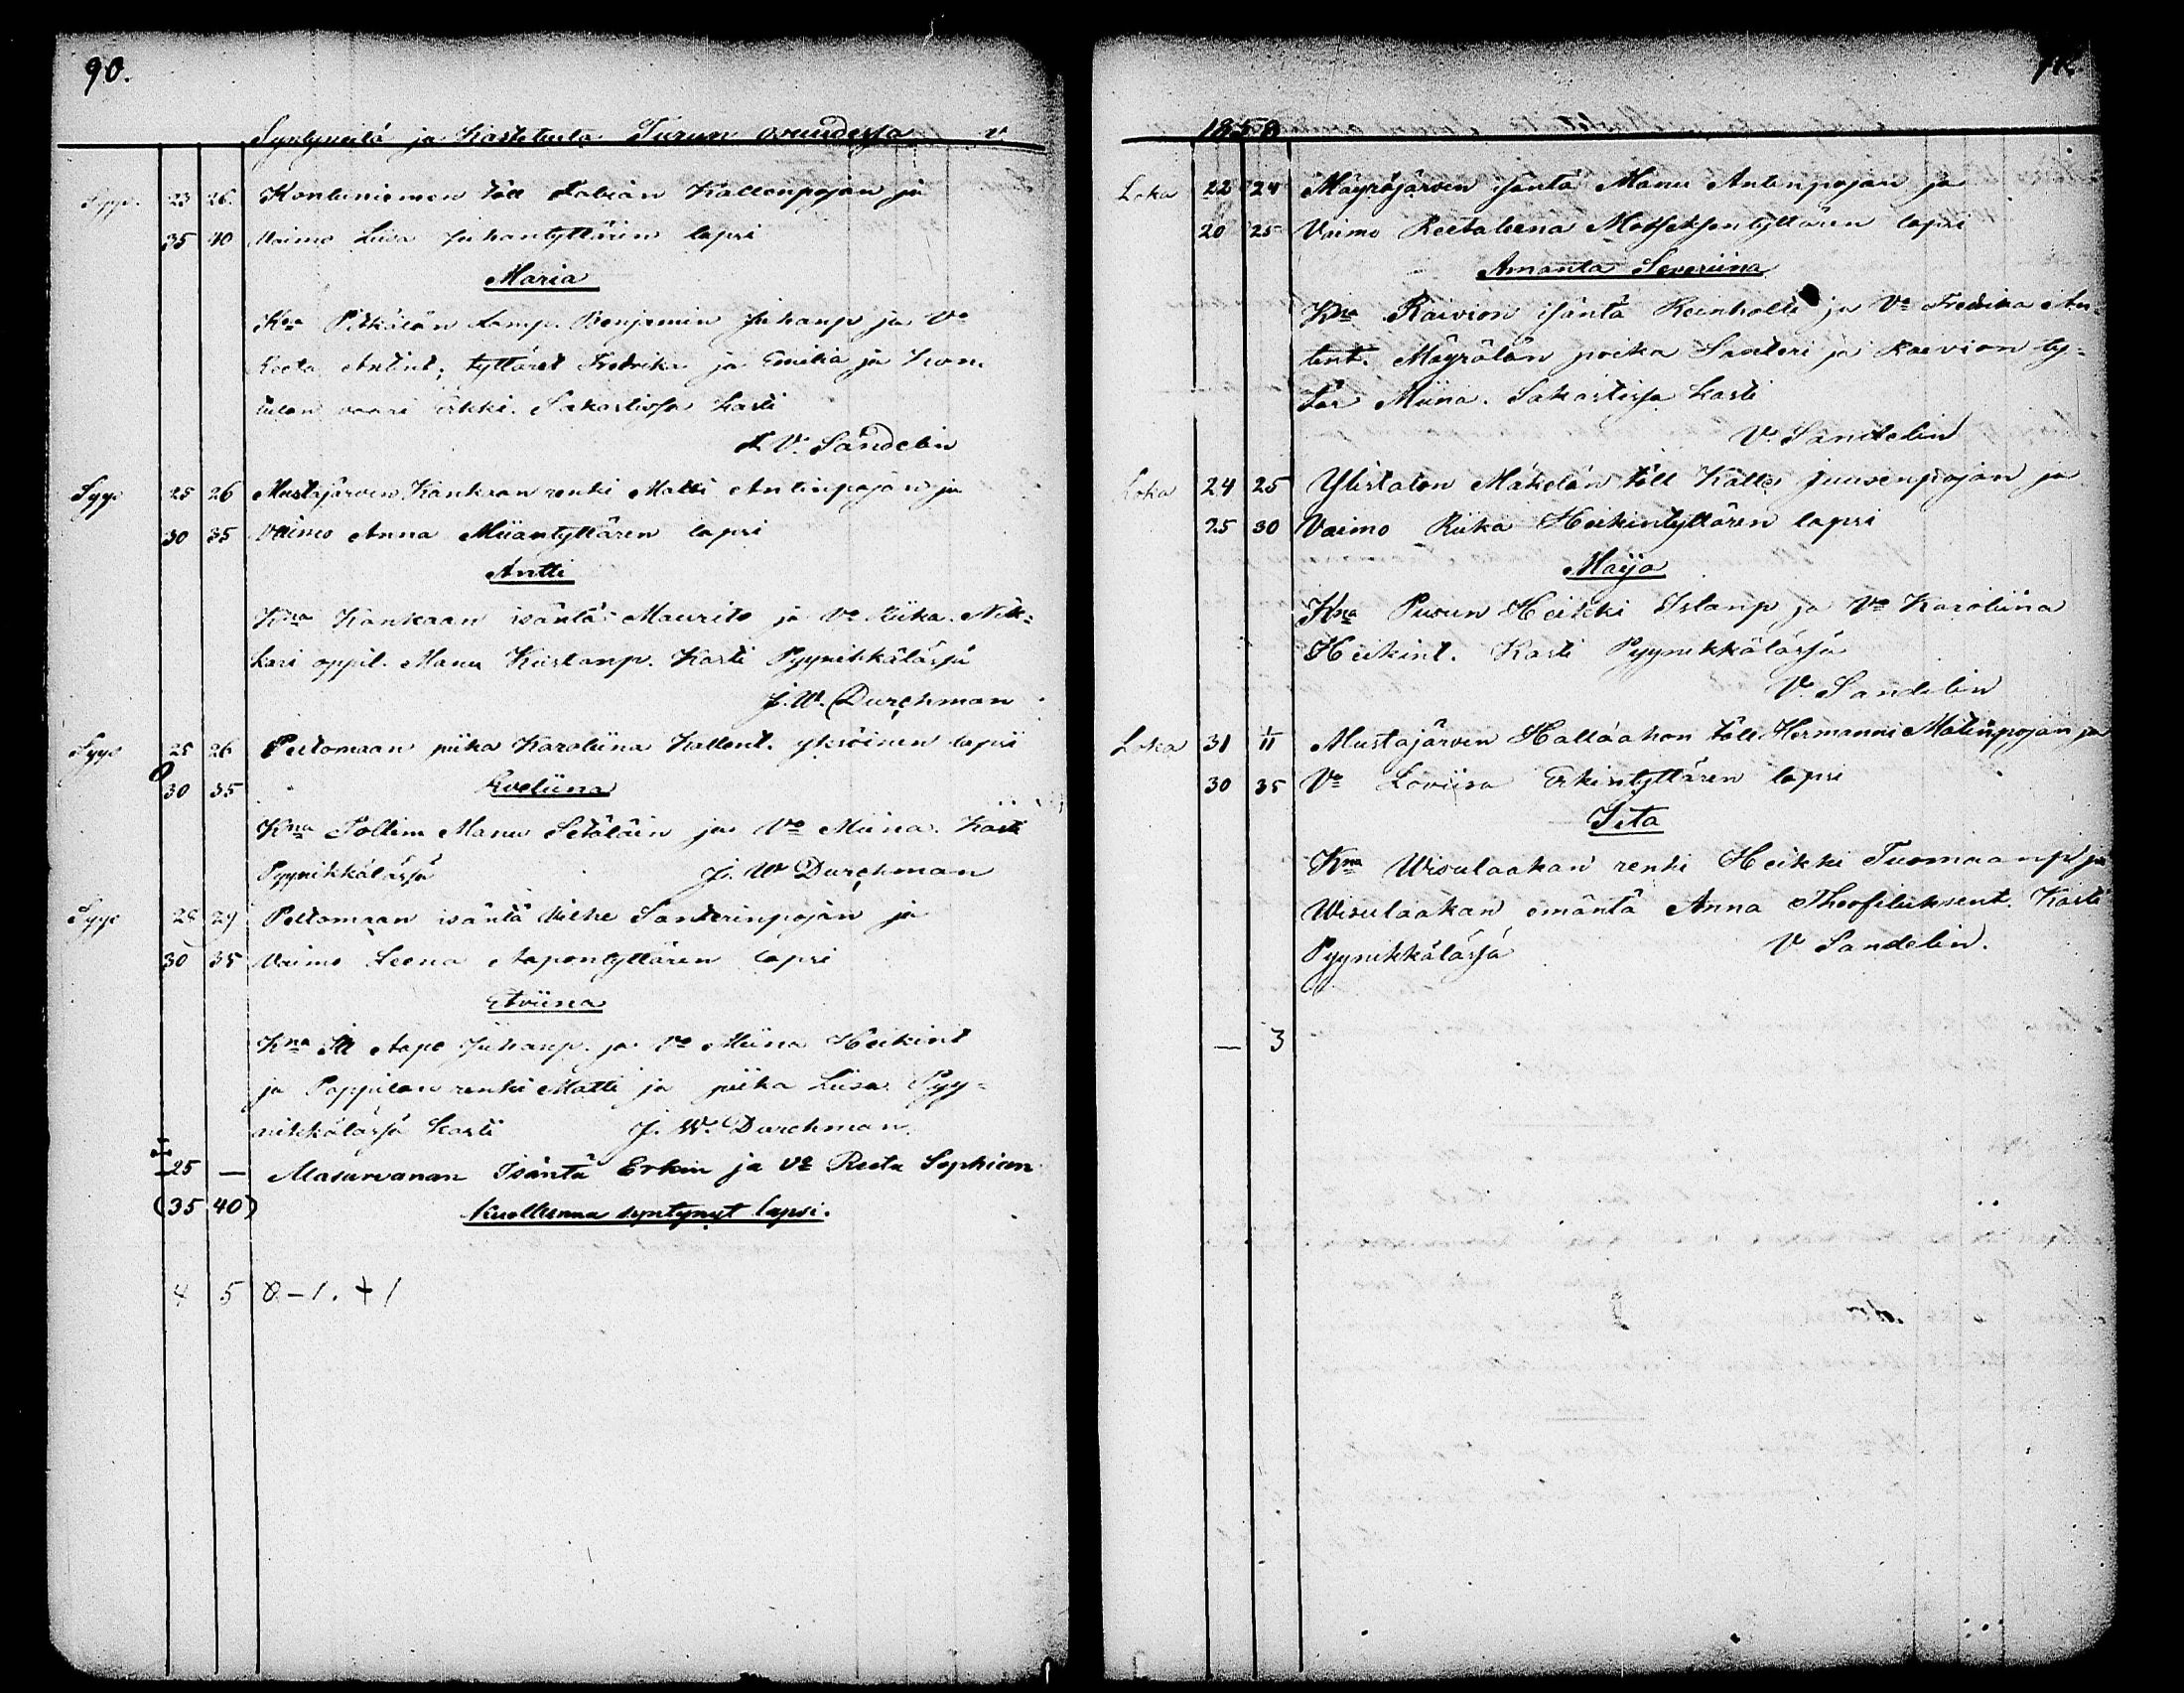 90.
Syntyneitä ja Kastetuita Turun osuudessa v
Syys. 23 26. Kontuniemen töll Fabian Kallenpojan ja
35 40 Vaimo Liisa Juhantyttären lapsi
Maria
Kna Pitkälän Lamp. Benjamin Juhanp ja Vo
Reeta Antint. tyttäret Fredrika ja Emilia ja
vaari Erkki. Sakastissa kasti
F. V. Sandelin
Syys 25 26 Mustajärven Kankaan renki Matti Antinpojan ja
30 35 Vaimo Anna Miiantyttären lapsi
Antti
Kna Kankaan isäntä Maurits ja Vo Riika. Nik-
kari oppil. Manu Kustanp. Kasti Pyynikkälässä
J. W. Durchman
Syys 25 26 Peltomaan piika Karoliina Kallent. yksöinen lapsi
30 35 Eveliina
Kna Manu Setäläin ja Vo Miina. Kasti
Pyynikkälässä J. W Durchman
Syys 25 29 Peltomaan isäntä Ville Santerinpojan ja
30 35 Vaimo Leena Aapontyttären lapsi
Etviina
Kna It Aapo Juhanp. ja Vo Miina Heikint
ja Pappilan renki Matti ja piika Liisa. Pyy-
nikkälässä kasti J. W. Durchman.
25 — Masurvanan Isäntä Erkin ja Vo Reeta Sophian
(35 40) Kuollunna syntynyt lapsi.
4 5 8 – 1. + 1
1858
Loka 22 24 Mäyräjärven isäntä Manu Antinpojan ja
20 25 Vaimo Reetaleena Matseksentyttären lapsi
Amanta Severiina
Kna Raivion isäntä Reinholti ja Vo Fredrika An-
tint. Mäyrälän poika Santeri ja Raivion ty-
tär Miina. Sakastissa kasti
V. Sandelin
Loka 24 25 Ylistalon Mäkelän töll Kalle Juusenpojan ja
25 30 Vaimo Riika Heikintyttären lapsi
Maija
Kna Puvun Heikki Istanp ja Vo Karoliina
Heikint. Kasti Pyynikkälässä
V. Sandelin
Loka 31 1/11 Mustajärven Hallaahon töll Hermanni Matinpojan ja
30 35 Vo Loviisa Erkintyttären lapsi
Iita
Kna Wisulaakan renki Heikki Tuomaanp ja
Wisulaakan emäntä Anna Theofiluksent. Kasti
Pyynikkälässä V Sandelin.
— 3